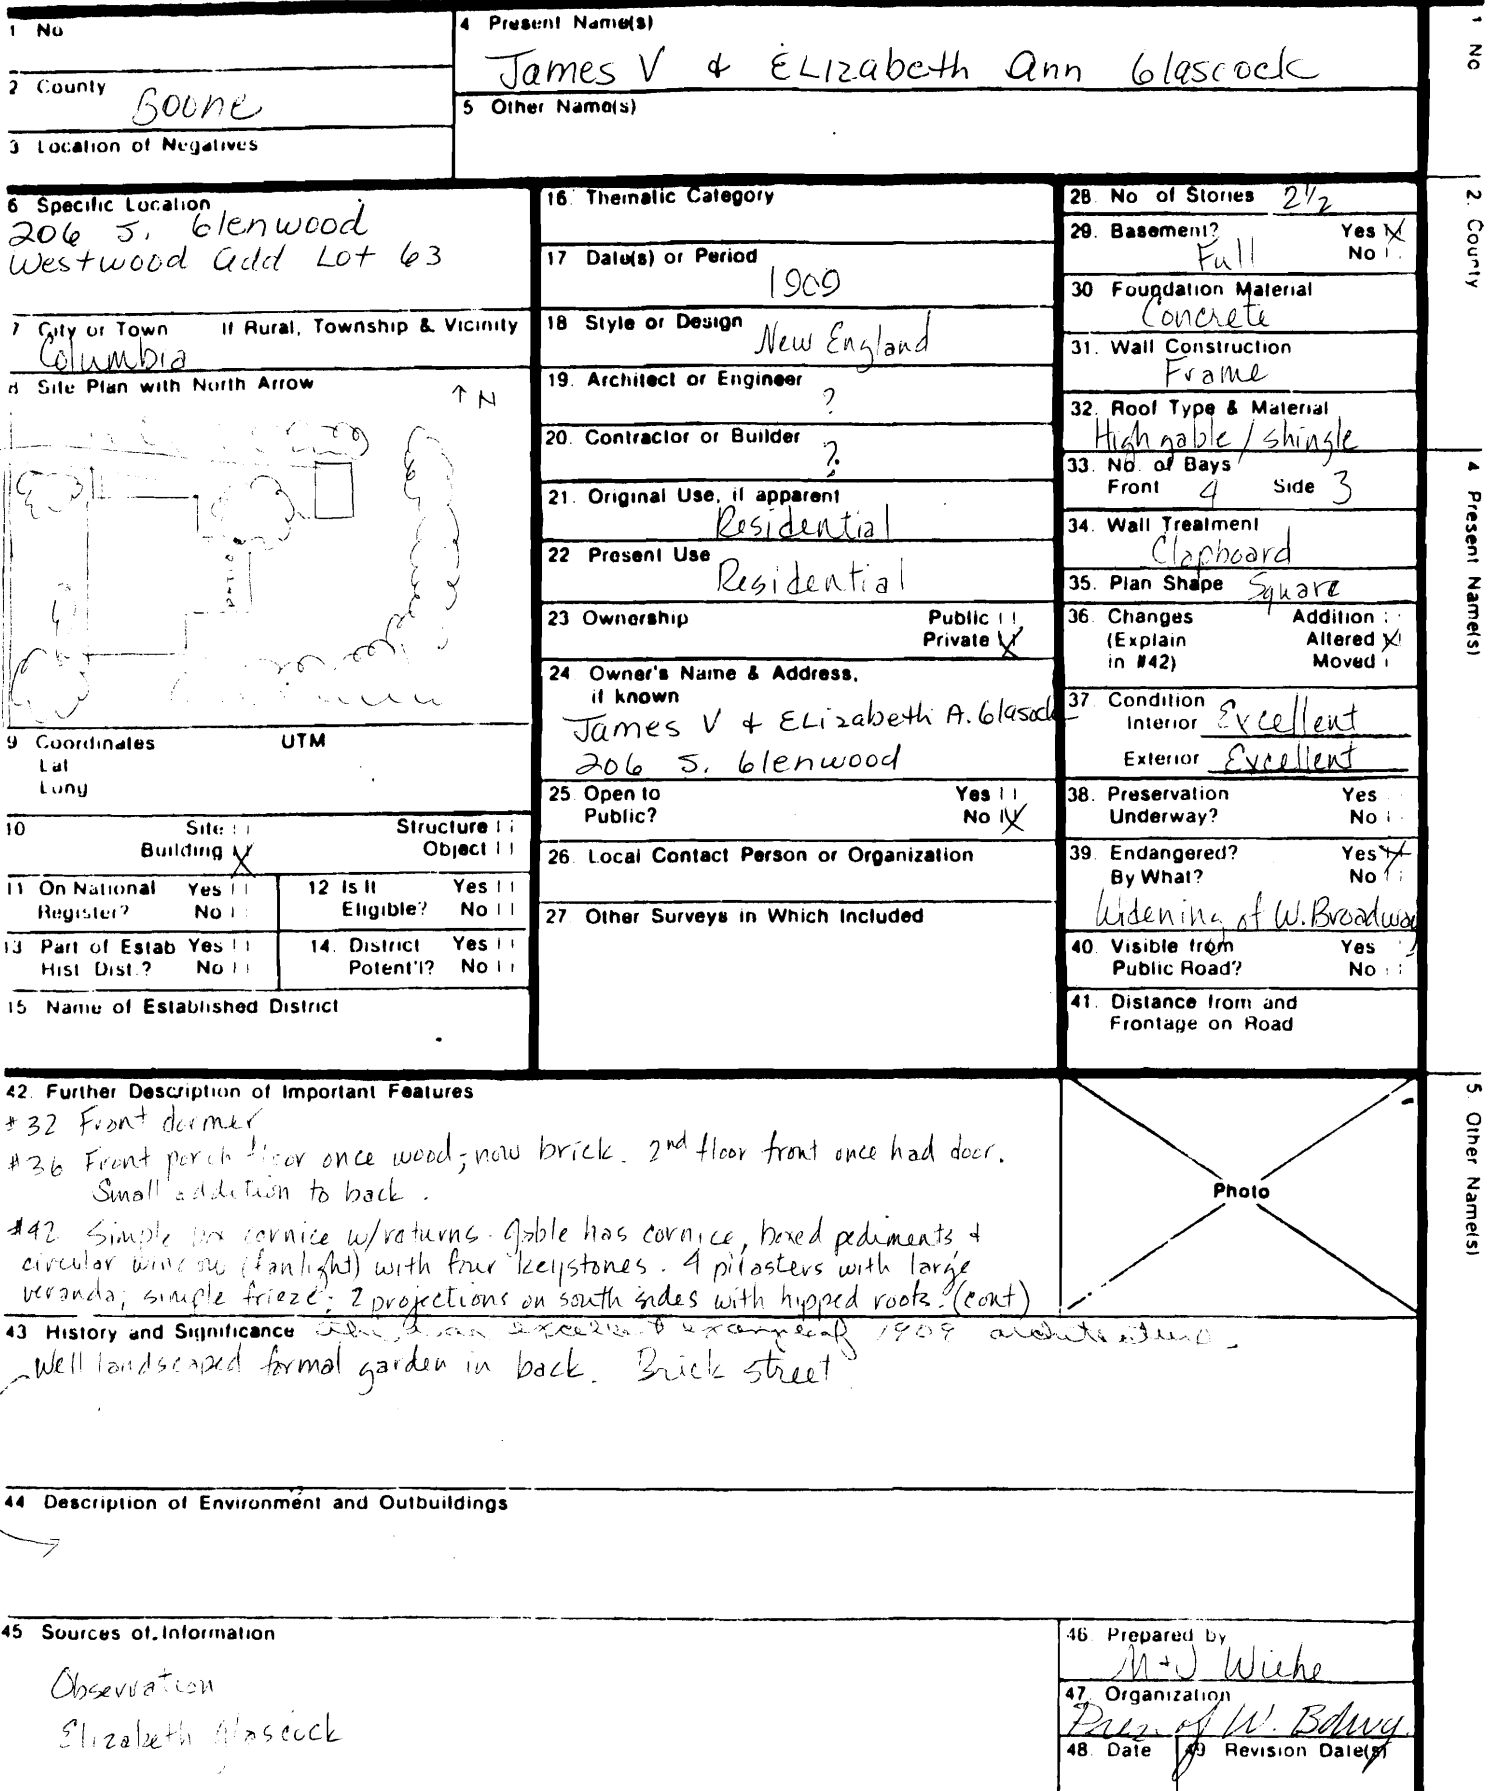 1 No
4 Present Name(s)
James V & Elizabeth Ann Glascock
2 County
Boone
5 Other Name(s)
3 Location of Negatives
6 Specific Location
206 S. Glenwood
Westwood Add Lot 63
7 City or Town If Rural, Township & Vicinity
Columbia
8 Site Plan with North Arrow
↑ N
patio
9 Coordinates UTM
Lat
Long
10 Site Structure
Building X Object
11 On National Register? Yes No
12 Is It Eligible? Yes No
13 Part of Estab Hist. Dist.? Yes No
14. District Potent'l? Yes No
15 Name of Established District
16. Thematic Category
17 Date(s) or Period
1909
18 Style or Design
New England
19. Architect or Engineer
?
20. Contractor or Builder
?
21. Original Use, if apparent
Residential
22 Present Use
Residential
23 Ownership Public
Private X
24 Owner's Name & Address,
if known
James V & Elizabeth A. Glasock
206 S. Glenwood
25. Open to Yes
Public? No X
26. Local Contact Person or Organization
27 Other Surveys in Which Included
28. No of Stories 2 1/2
29. Basement? Yes X
Full No
30 Foundation Material
Concrete
31. Wall Construction
Frame
32. Roof Type & Material
High gable / shingle
33. No. of Bays
Front 4 Side 3
34. Wall Treatment
Clapboard
35. Plan Shape Square
36. Changes Addition
(Explain Altered X
in #42) Moved
37. Condition
Interior Excellent
Exterior Excellent
38. Preservation Yes
Underway? No
39. Endangered? Yes X
By What? No
Widening of W. Broadway
40. Visible from Yes
Public Road? No
41. Distance from and
Frontage on Road
42. Further Description of Important Features
#32 Front dormer
#36 Front porch floor once wood; now brick. 2nd floor front once had door.
Small addition to back.
#42 Simple box cornice w/returns. Gable has cornice, boxed pediments &
circular window (fanlight) with four keystones. 4 pilasters with large
veranda; simple frieze; 2 projections on south sides with hipped roofs. (cont)
Photo
43 History and Significance an excellent example of 1909 architecture.
Well landscaped formal garden in back. Brick street
44 Description of Environment and Outbuildings
45 Sources of Information
Observation
Elizabeth Glascock
46. Prepared by
M + J Wiehe
47. Organization
Pres. of W. Bdwy.
48. Date 49 Revision Date(s)
1 No
2. County
4 Present Name(s)
5. Other Name(s)